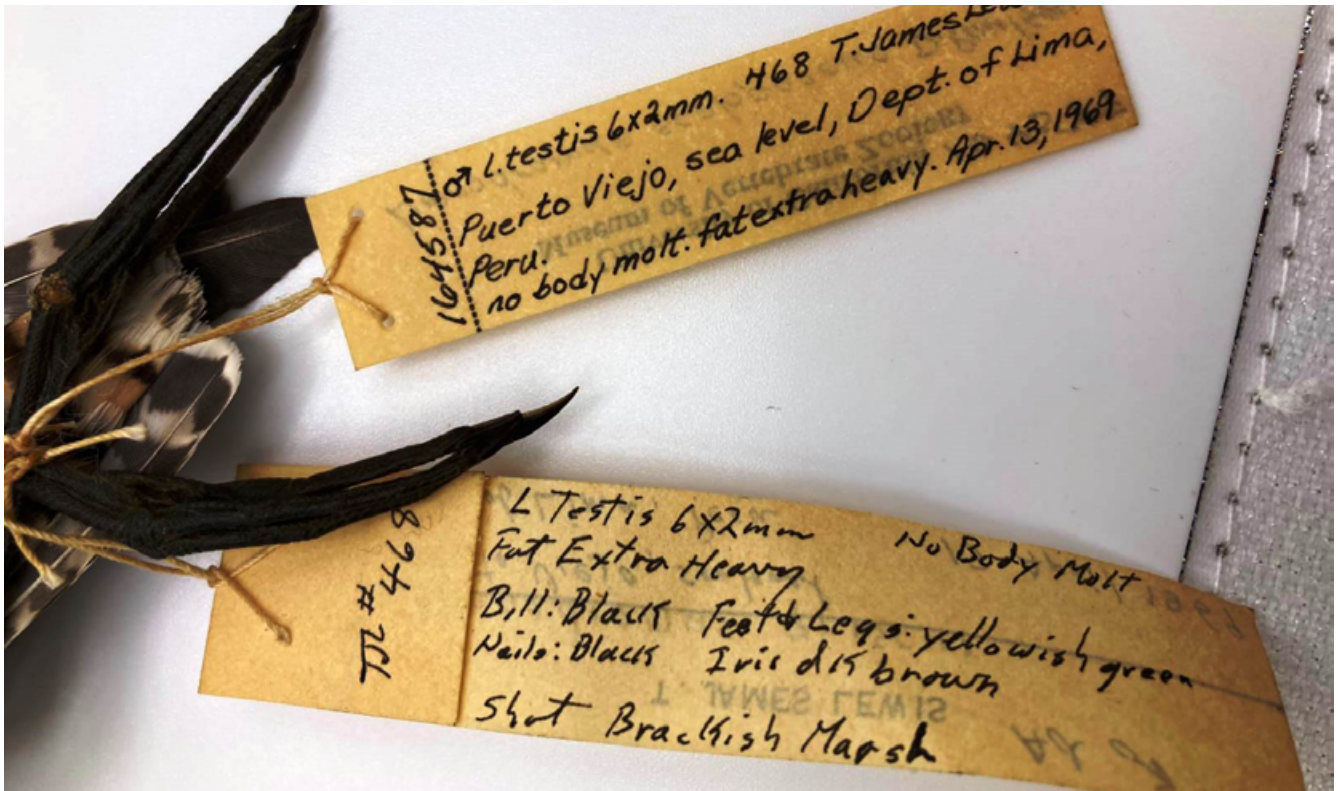 ♂ L. testis 6x2mm. 468 T. James Lewis
Puerto Viejo, sea level, Dept. of Lima,
Peru.
no body molt. fat extra heavy. Apr. 13, 1969
164587
Museum of Vertebrate Zoology
L Testis 6x2mm No Body Molt
Fat Extra Heavy
Bill: Black Feet & Legs: yellowish green
Nails: Black Iris dk brown
Shot Brackish Marsh
TJL # 468
T. JAMES LEWIS
Ad ♂